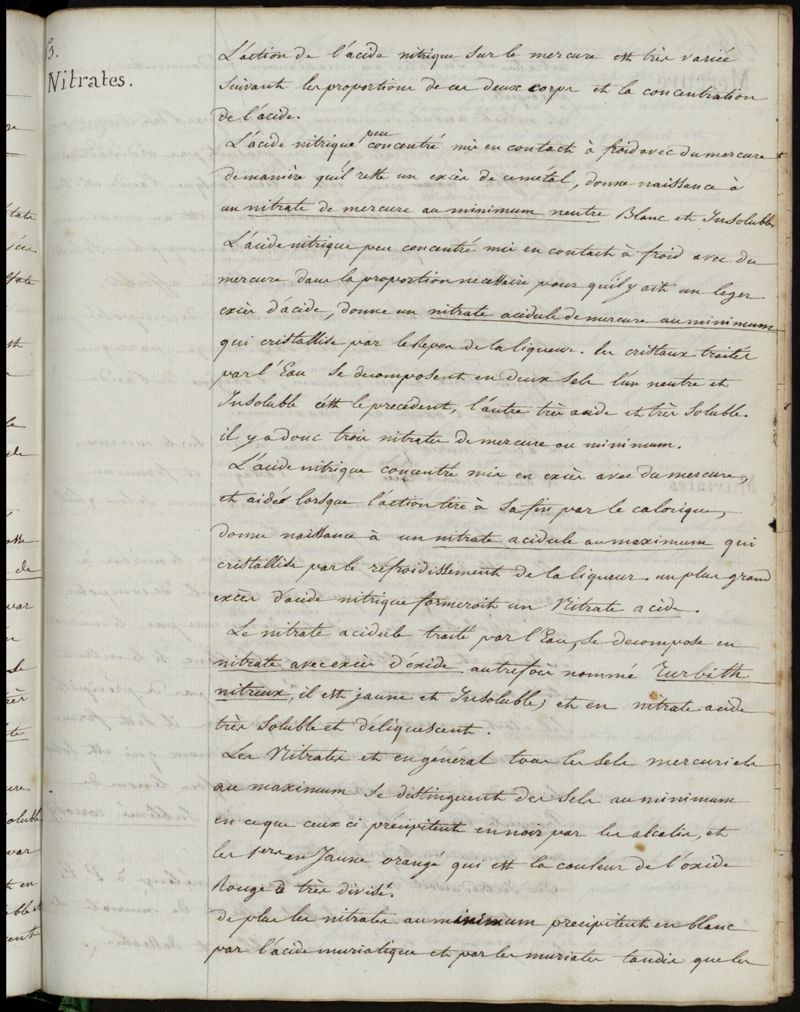 3.
Nitrates.
L'action de l'acide nitrique sur le mercure est très variée
suivant les proportions de ces deux corps et la concentration
de l'acide.
L'acide nitrique peu concentré mis en contact à froid avec du mercure
de manière qu'il reste un excès de ce métal, donne naissance à
un nitrate de mercure au minimum neutre Blanc et Insoluble
L'acide nitrique peu concentré mis en contact à froid avec du
mercure dans la proportion necessaire pour qu'il y ait un leger
excès d'acide, donne un nitrate acidule de mercure au minimum
qui cristallise par le repos de la liqueur. les cristaux traités
par l'Eau se decomposent en deux sels l'un neutre et
Insoluble c'est le precedent, l'autre très acide et très soluble.
il y a donc trois nitrates de mercure au minimum.
L'acide nitrique concentré mis en excès avec du mercure,
et aidés lorsque l'action tire à sa fin par le calorique,
donne naissance à un nitrate acidule au maximum qui
cristallise par le refroidissement de la liqueur. un plus grand
excès d'acide nitrique formeroit un Nitrate acide.
Le nitrate acidule traité par l'Eau, se decompose en
nitrate avec excès d'oxide autrefois nommé Turbith
nitreux, il est jaune et Insoluble; et en nitrate acide
très soluble et déliquescent.
Les Nitrates et en général tous les sels mercuriels
au maximum se distinguent des sels au minimum
en ce que ceux ci précipitent en noir par les alcalis, et
les 1ers en Jaune orangé qui est la couleur de l'oxide
Rouge très divisé.
de plus les nitrates au minimum precipitent en blanc
par l'acide muriatique et par les muriates tandis que les